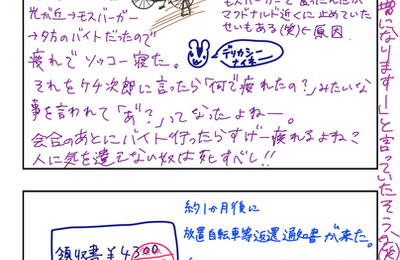 光が丘→モスバーガー
→夕方のバイトだったので
疲れてソッコー寝た。
マクドナルド近くに止めていた
せいもある(笑)←原因
デリカシー
ナイネー
それをケチ次郎に言ったら「何で疲れたの？」みたいな
事を言われて「あ゛？」ってなったよねー。
会合のあとにバイト行ったらすげー疲れるよね？
人に気を遣えない奴は死すべし!!
増になります！」と言っていたそう。(笑)
約1か月後に
放置自転車等返還通知書が来た。
領収書￥4300